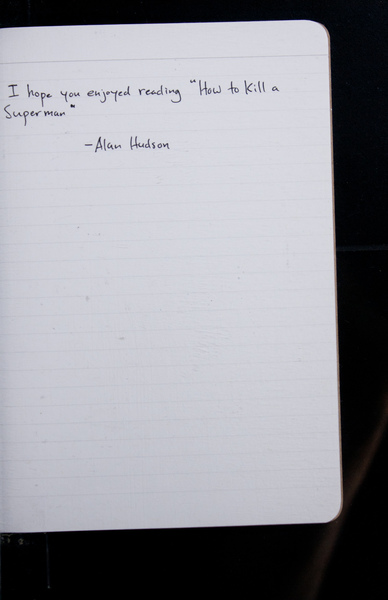 I hope you enjoyed reading "How to Kill a
Superman"
-Alan Hudson